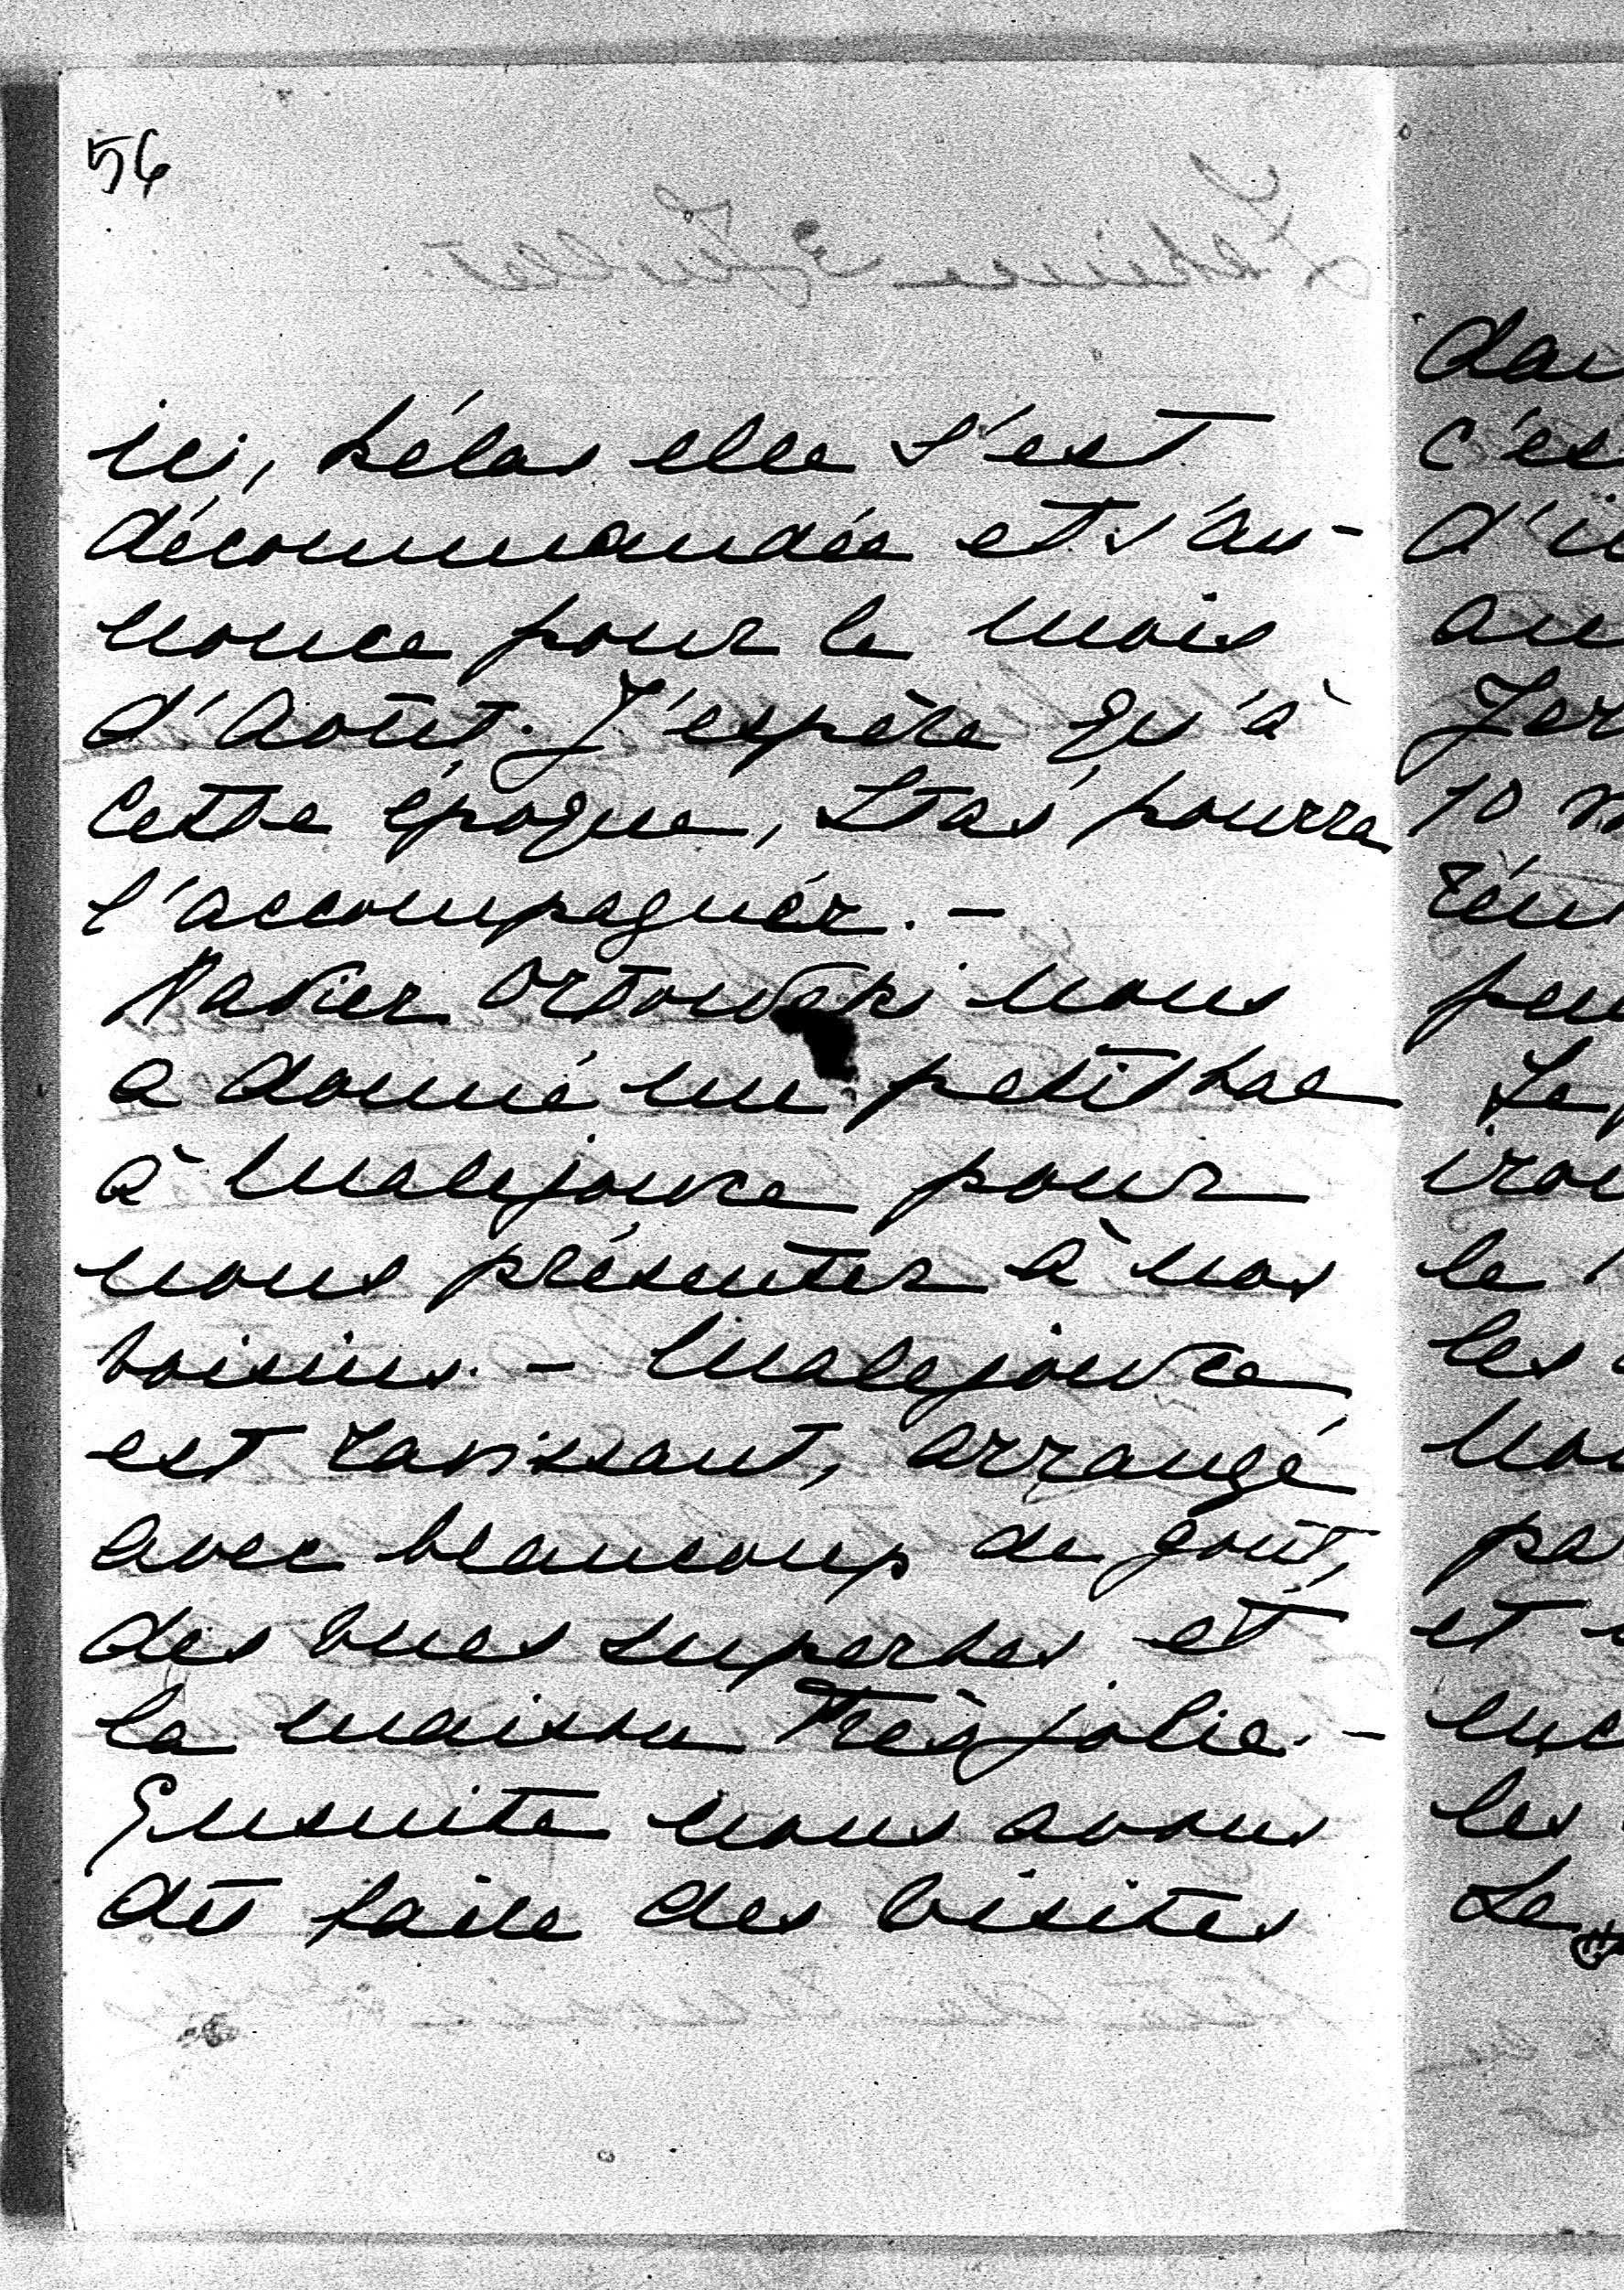 56
ici, hélas elle s'est
décommandée et s'an-
nonce pour le mois
d'Août. J'espère qu'à
cette époque, Stas pourra
l'accompagner. -
Xavier Orłowski nous
a donné un petit bal
à Malejowce pour
nous présenter à nos
voisins. - Malejowce
est ravissant, arrangé
avec beaucoup de goût,
des vues superbes et
la maison très jolie. -
Ensuite nous avons
dû faire des visites